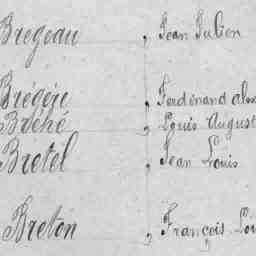 Bregeau , Jean Julien
Brégère , Ferdinand Alex
Bréhé , Louis August
Bretel , Jean Louis
Breton , François Lou